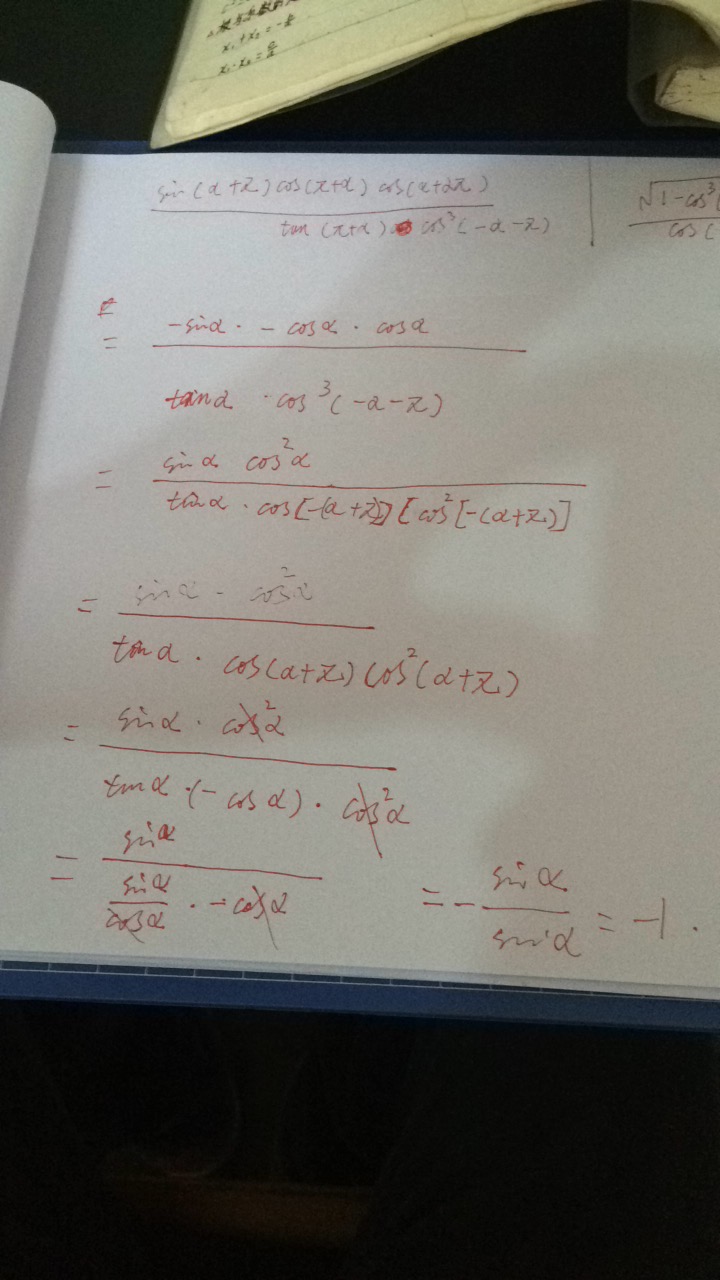 x₁+x₂=-b/a
x₁·x₂=c/a
sin(α+π)cos(π+α)cos(α+2π) / tan(π+α) cos³(-α-π)
√1-cos³( / cos(
= -sinα·-cosα·cosα / tanα·cos³(-α-π)
= sinα cos²α / tanα·cos[-(α+π)][cos²[-(α+π)]
= sinα-cos²α / tanα·cos(α+π)cos²(α+π)
= sinα·cos²α / tanα·(-cosα)·cos²α
= sinα / sinα/cosα·-cosα = -sinα/sinα = -1.